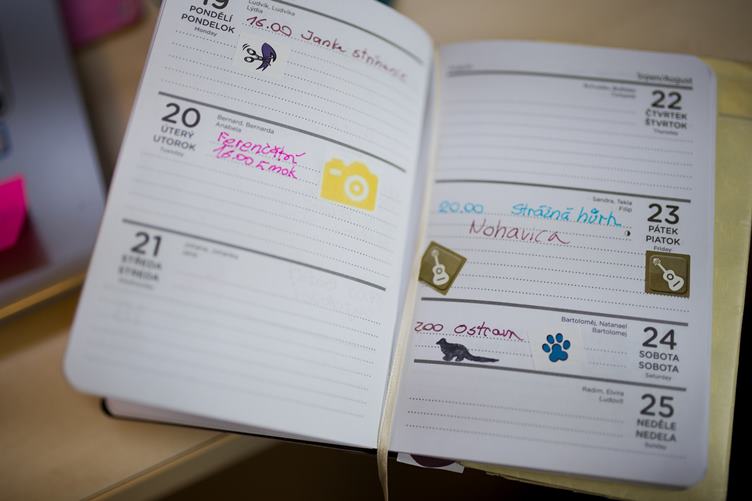 19
PONDĚLÍ
PONDELOK
Monday
Ludvík, Ludvika
Lýdia
16.00 Janka stříhanie
20
ÚTERÝ
UTOROK
Tuesday
Bernard, Bernarda
Anabela
16.00 Emok
21
STŘEDA
STREDA
Johana, Johanka
Jana
Srpen/August
22
ČTVRTEK
ŠTVRTOK
Thursday
23
PÁTEK
PIATOK
Friday
Sandra, Tekla
Filip
20.00 Strážná hůrh
Nohavica
24
SOBOTA
SOBOTA
Saturday
Bartoloměj, Natanael
Bartolomej
ZOO Ostrava
25
NEDĚLE
NEDEĽA
Sunday
Radim, Elvíra
Ľudovít